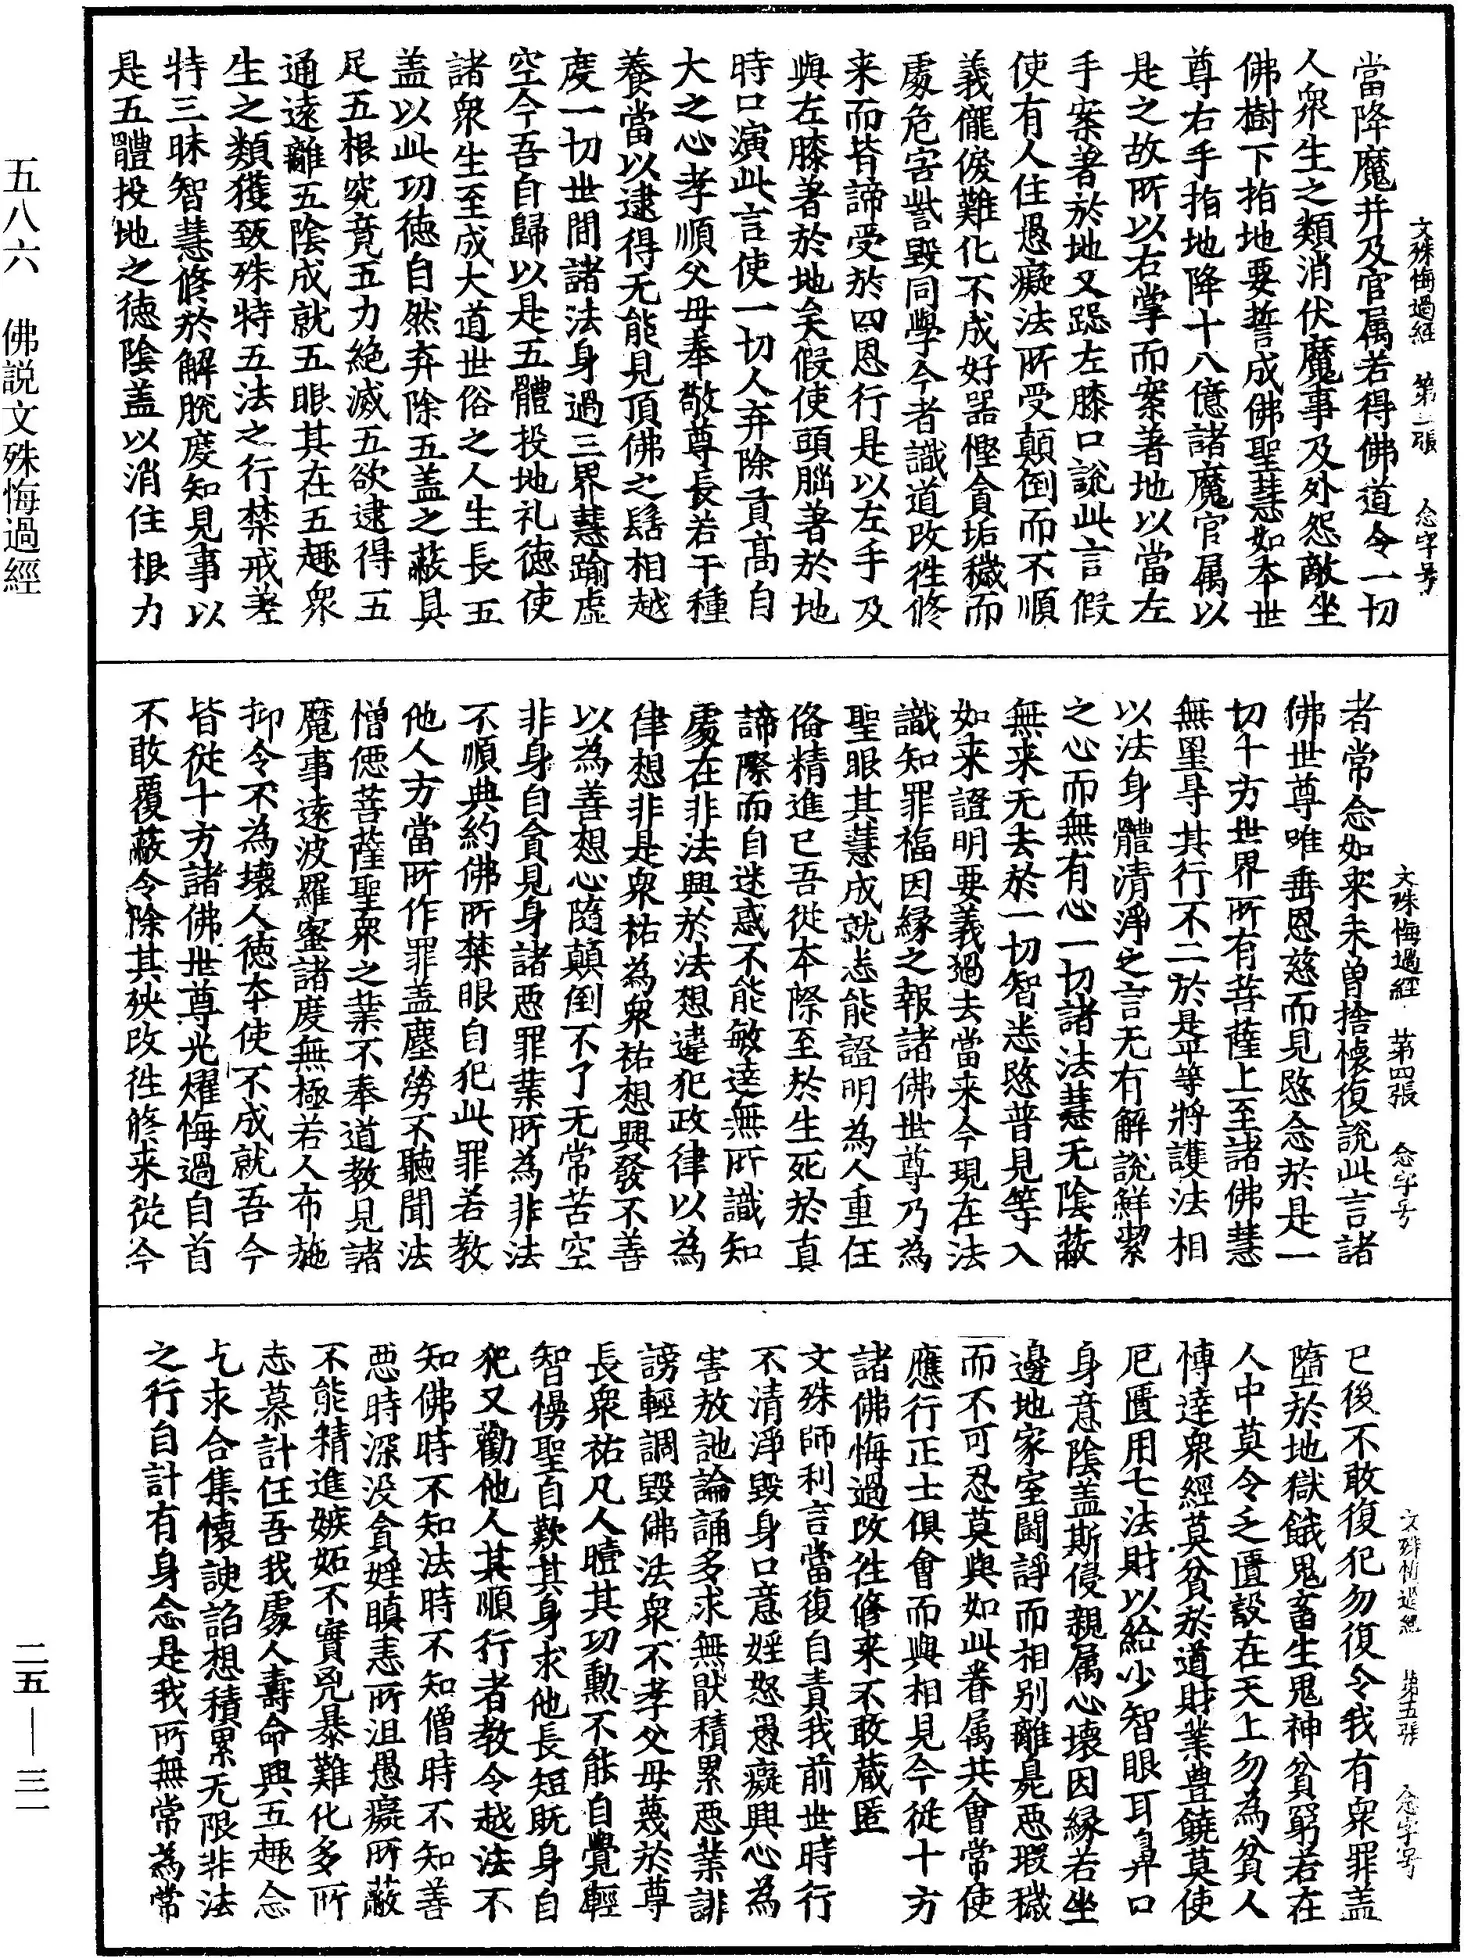 文殊悔過經　第三張　念字号
當降魔并及官属若得佛道令一切
人衆生之類消伏魔事及外怨敵坐
佛樹下指地要誓成佛聖慧如本世
尊右手指地降十八億諸魔官属以
是之故所以右掌而案著地以當左
手案著於地又跽左膝口說此言假
使有人住愚癡法所受顛倒而不順
義儱悷難化不成好器慳貪垢穢而
處危害訾毀同學今者識道改徃修
来而皆諦受於四恩行是以左手及
與左膝著於地矣假使頭腦著於地
時口演此言使一切人弃除貢髙自
大之心孝順父母奉敬尊長若干種
養當以逮得无能見頂佛之髻相越
度一切世間諸法身過三界慧踰虛
空今吾自歸以是五體投地礼德使
諸衆生至成大道世俗之人生長五
盖以此功德自然弃除五盖之蔽具
足五根究竟五力絶滅五欲逮得五
通遠離五陰成就五眼其在五趣衆
生之類獲致殊特五法之行禁戒差
特三昧智慧修於解脫度知見事以
是五體投地之德陰盖以消住根力
文殊悔過經　第四張　念字号
者常念如来未曽捨懐復說此言諸
佛世尊唯垂恩慈而見愍念於是一
切十方世界所有菩薩上至諸佛慧
無罣㝵其行不二於是平等將護法相
以法身體清淨之言无有解說鮮絜
之心而無有心一切諸法慧无陰蔽
無来无去於一切智悉愍普見等入
如来證明要義過去當来今現在法
識知罪福因縁之報諸佛世尊乃為
聖眼其慧成就悉能證明為人重任
俻精進已吾從本際至於生死於真
諦際而自迷惑不能敏達無所識知
處在非法興於法想違犯政律以為
律想非是衆祐為衆祐想興發不善
以為善想心隨顛倒不了无常苦空
非身自貪見身諸惡罪業所為非法
不順典約佛所禁眼自犯此罪若教
他人方當所作罪盖塵勞不聽聞法
憎僫菩薩聖衆之業不奉道教見諸
魔事遠波羅蜜諸度無極若人布施
抑令不為壊人德本使不成就吾今
皆從十方諸佛世尊光燿悔過自首
不敢覆蔽令除其殃改徃修来從今
文殊悔過經　第五張　念字号
已後不敢復犯勿復令我有衆罪盖
墮於地獄餓鬼畜生鬼神貧窮若在
人中莫令乏匱設在天上勿為貧人
慱達衆經莫貧於道財業豊饒莫使
厄匱用七法財以給少智眼耳鼻口
身意陰盖斯侵親属心壊因縁若坐
邊地家室鬪諍而相別離毙惡瑕穢
而不可忍莫與如此眷属共會常使
應行正士俱會而與相見今從十方
諸佛悔過改徃修来不敢蔵匿
文殊師利言當復自責我前世時行
不清淨毀身口意婬怒愚癡興心為
害放訑論誦多求無猒積累惡業誹
謗輕調毀佛法衆不孝父母蔑於尊
長衆祐凡人曀其功勳不能自覺輕
智慢聖自歎其身求他長短既身自
犯又勸他人其順行者教令越法不
知佛時不知法時不知僧時不知善
惡時深没貪婬瞋恚所沮愚癡所蔽
不能精進嫉妬不實兇暴難化多所
志慕計任吾我處人壽命興五趣念
乞求合集懐諛諂想積累无限非法
之行自計有身念是我所無常為常
五八六　佛説文殊悔過經
二五—三一